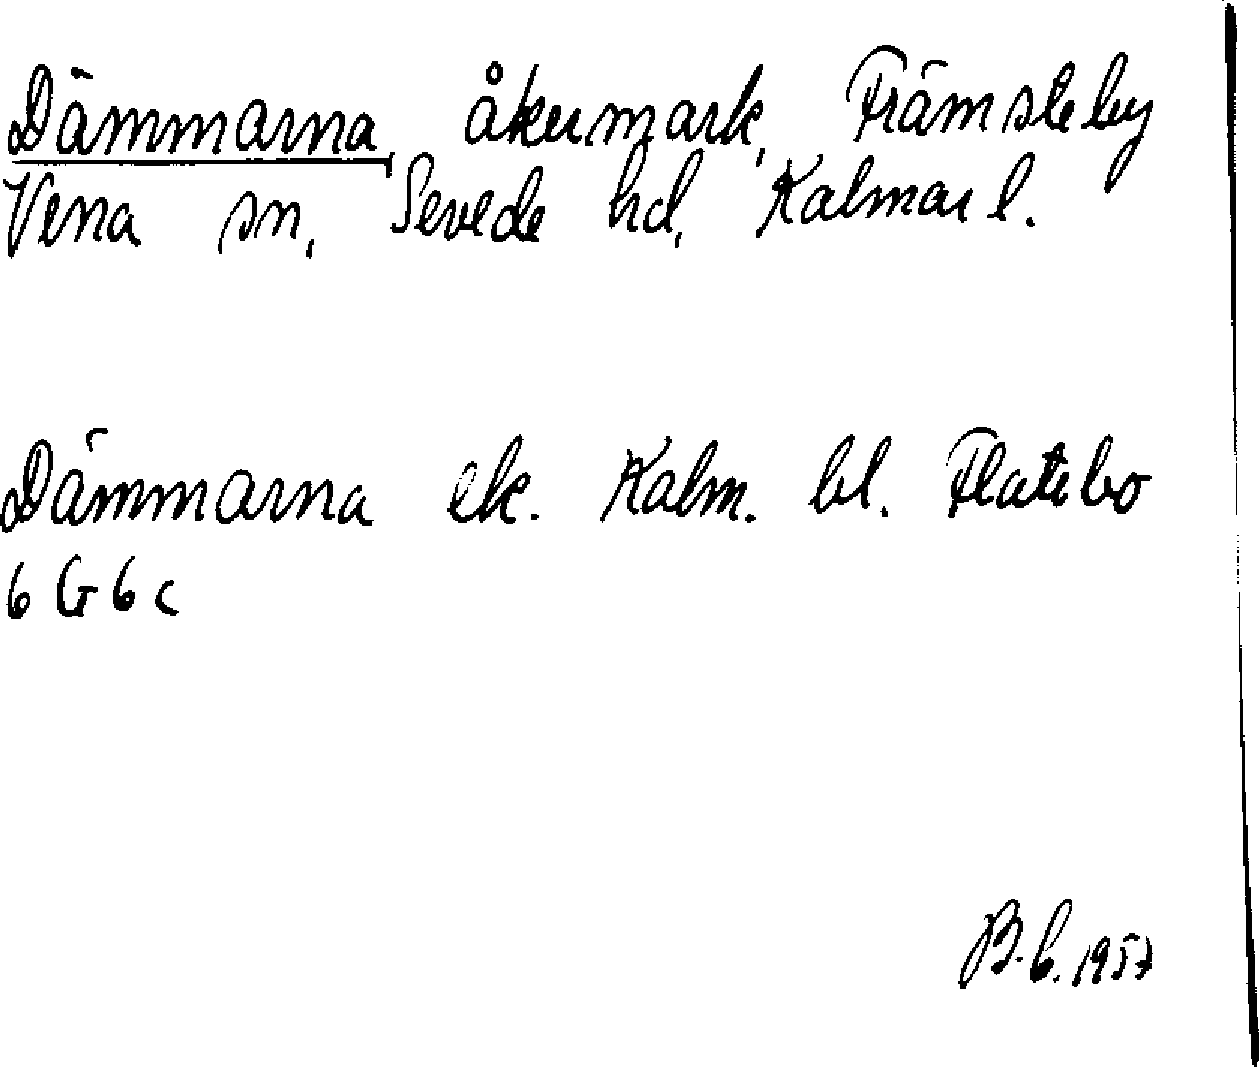 Dämmarna, åkermark, Främsteby
Vena sn, Sevede hd, Kalmar l.
Dämmarna ek. Kalm. bl. Flatebo
6 G 6 c
B.C. 1957